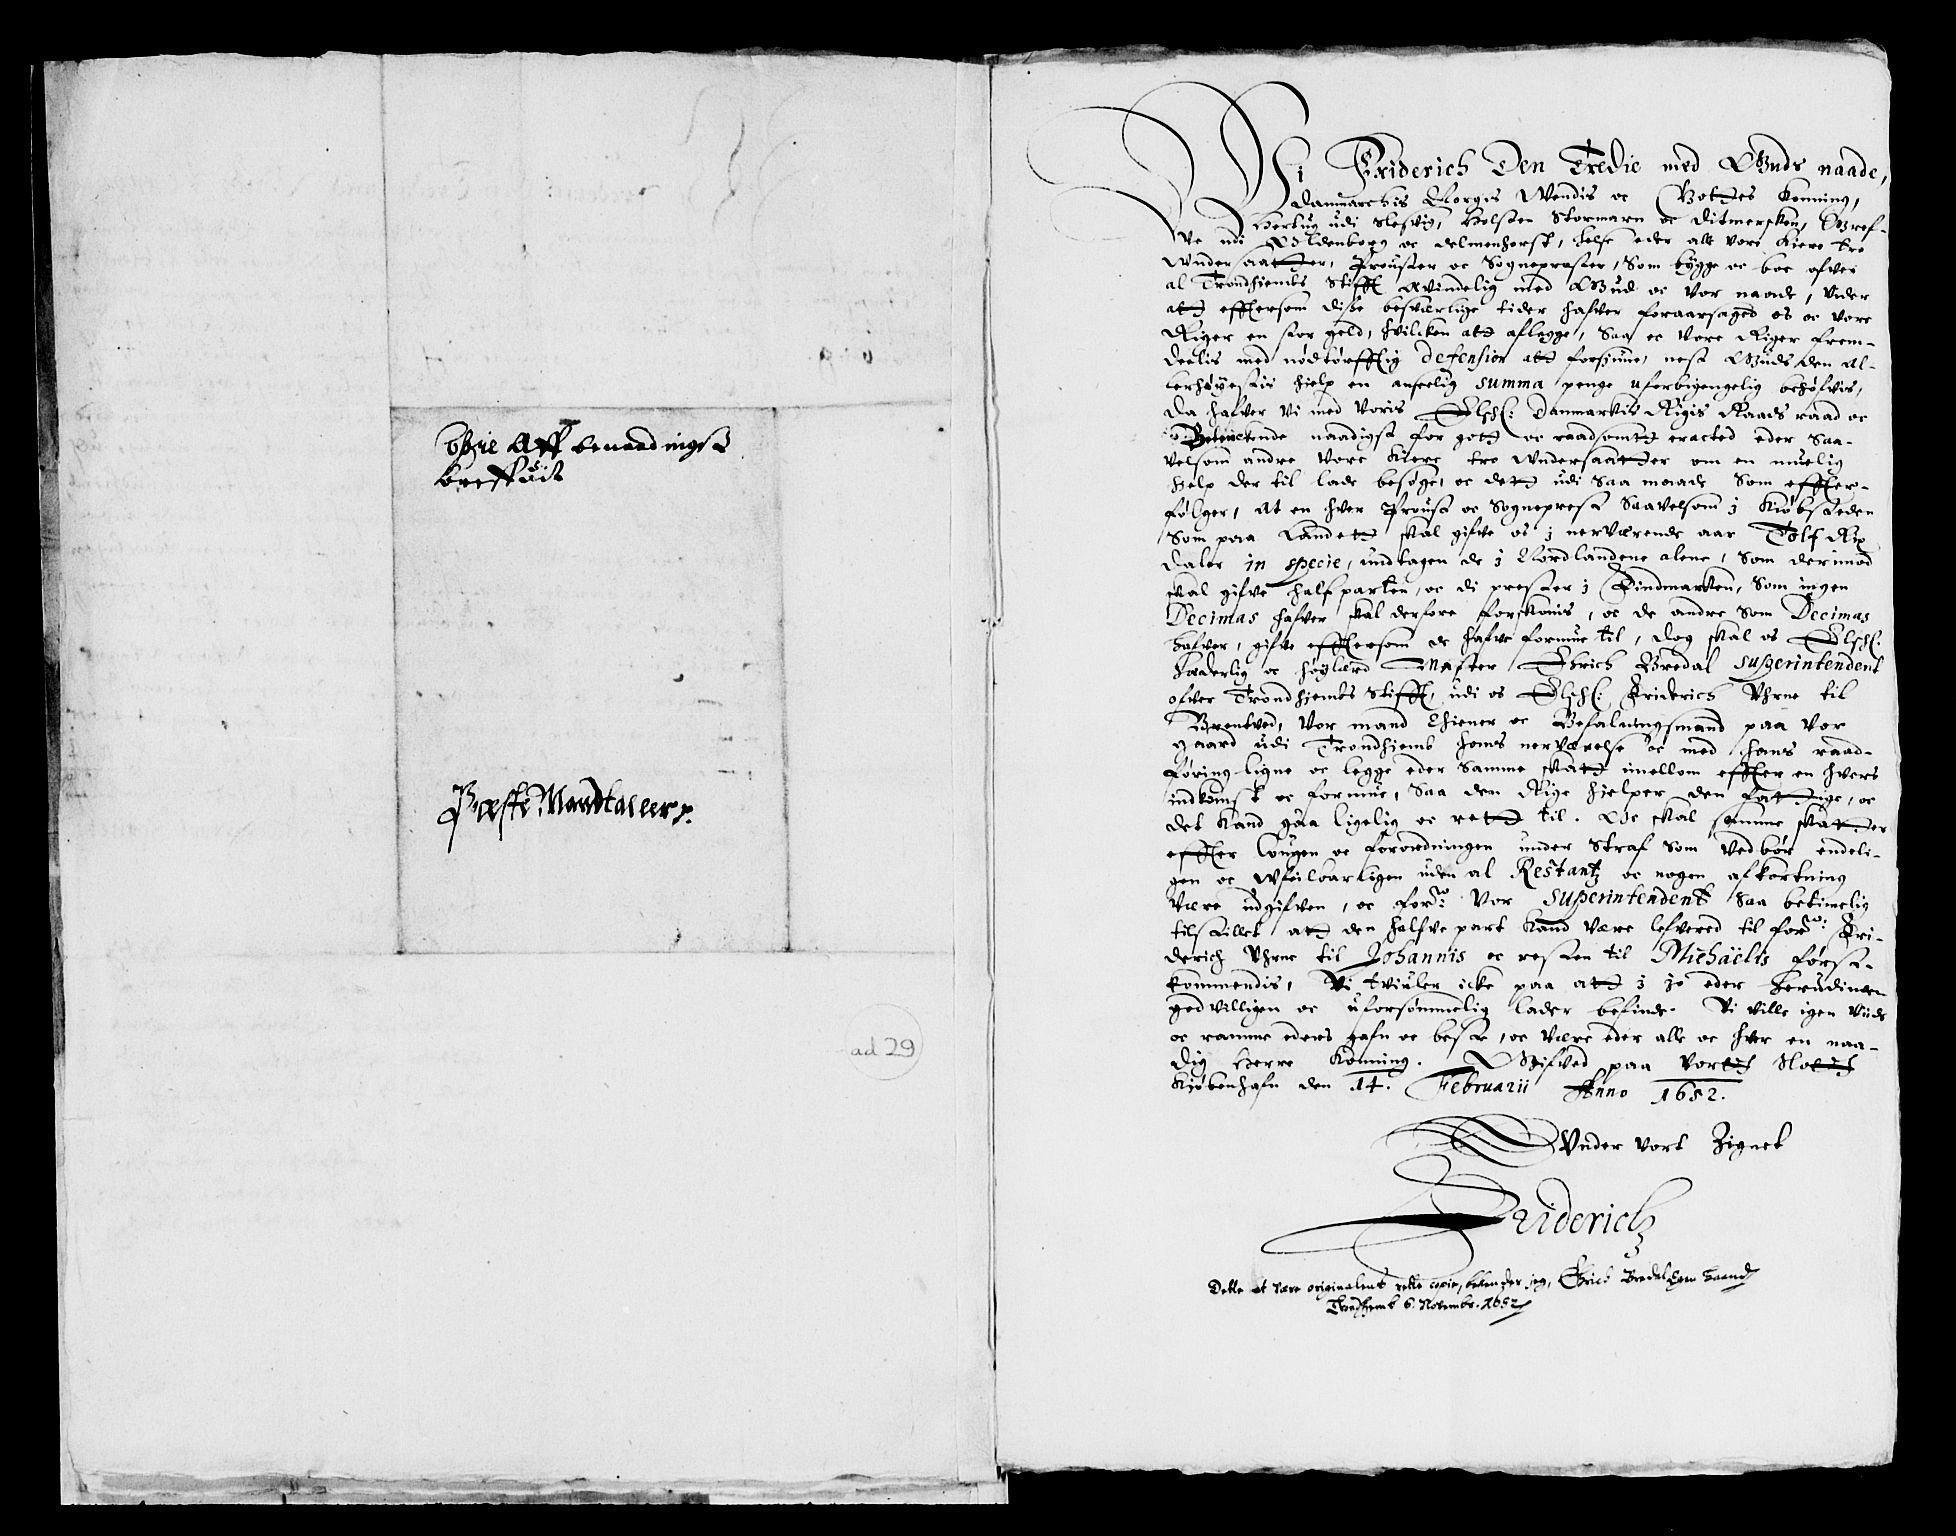 Copie Aff benaadingsz
breffuit
Præste Mandtaller p.
ad 29
Wi Friderich Den Tredie med Guds naade,
Danmarckis Norges Wendis oc Gottes Konning,
Hertug udi Slesvig, Holsten Stormarn oc Ditmersken, Gref-
ve udi Oldenborg oc Delmenhorst, helse eder alle vore kiere tro
Undersaatter, Prouster oc Sogneprester, Som bygge oc boe ofver
al Trondhiembs Stifft ævindelig med Gud oc vor naade, Vider
att effterson diße besværlige tider hafver foraarsaged os oc vore
Riger en stor geld, hvilcken att aflegge, Saa oc vore Riger frem-
deelis med nødtørfftig defension att forsiune, nest Guds den Al-
lerhøyestis hielp en anseelig summa penge uforbigengelig behøfvis,
Da hafver vi med Voris Elsch: Danmarkis Rigis Raads raad oc
Betenckende naadigst for gott oc raadsomt eracted eder Saa-
velsom andre Vore kiere tro Undersaatter om en muelig
hielp der til lade besøge, oc dett udi Saa maade Som effter-
følger, At en hver Proust oc Sogneprest Saavelsom j Kiøbsteden
Som paa Landett skal gifve os j nerværende aar Tolf Rix
daler in specie, undtagen de j Nordlandene alene, Som derimod
skal gifve halfparten, oc di prester j Findmarken, Som ingen
Decimas hafver skal derfore forskonis, oc de andre Som Decimas
hafver, gifve effterson de hafve formue til, dog skal os Elsch:
Hæderlig oc høylærd Mester Erich Bredal superintendent
ofver Trondhjembs Stifft, udi os Elsch: Friderich Uhrne til
Brentved, Vor mand Thiener oc Befalningsmand paa Vor
gaard udi Trondhiemb hans nerværelse oc med hans raad-
føring ligne oc legge eder Samme skatt imellom effter en hvers
indkomst oc formue, Saa den Rige hielper den fattige, oc
det kand gaa ligelig oc rett til. Oc skal samme skatter
effter Lougen oc forordningen under Straf Som vedbør endeli-
gen oc Ufeilbarligen uden al Restantz oc nogen afkortning
Være udgifven, oc forne: Vor superintendent Saa betimelig
tilstillet att den halfve part kand være lefvered til forne: Fri-
derich Uhrne til Johannis oc resten til Michaëlis først-
kommendis, Vi tviuler icke paa att j jo eder herudinden
godvilligen oc uforsømmelig lader befinde. Vi ville igen Vide
oc ramme eders gafn oc beste, oc være eder alle oc hver en naa-
dig Herre Konning. Gifved paa Vortt Slott
Kiøbenhafn den 14. Februarii Anno 1652.
Under vort Zignet
Friderich
Dette at være originalens rette copie, bekiender jeg, Erich Bredal Egen Haand
Trondhemb 6. Novembr. 1652